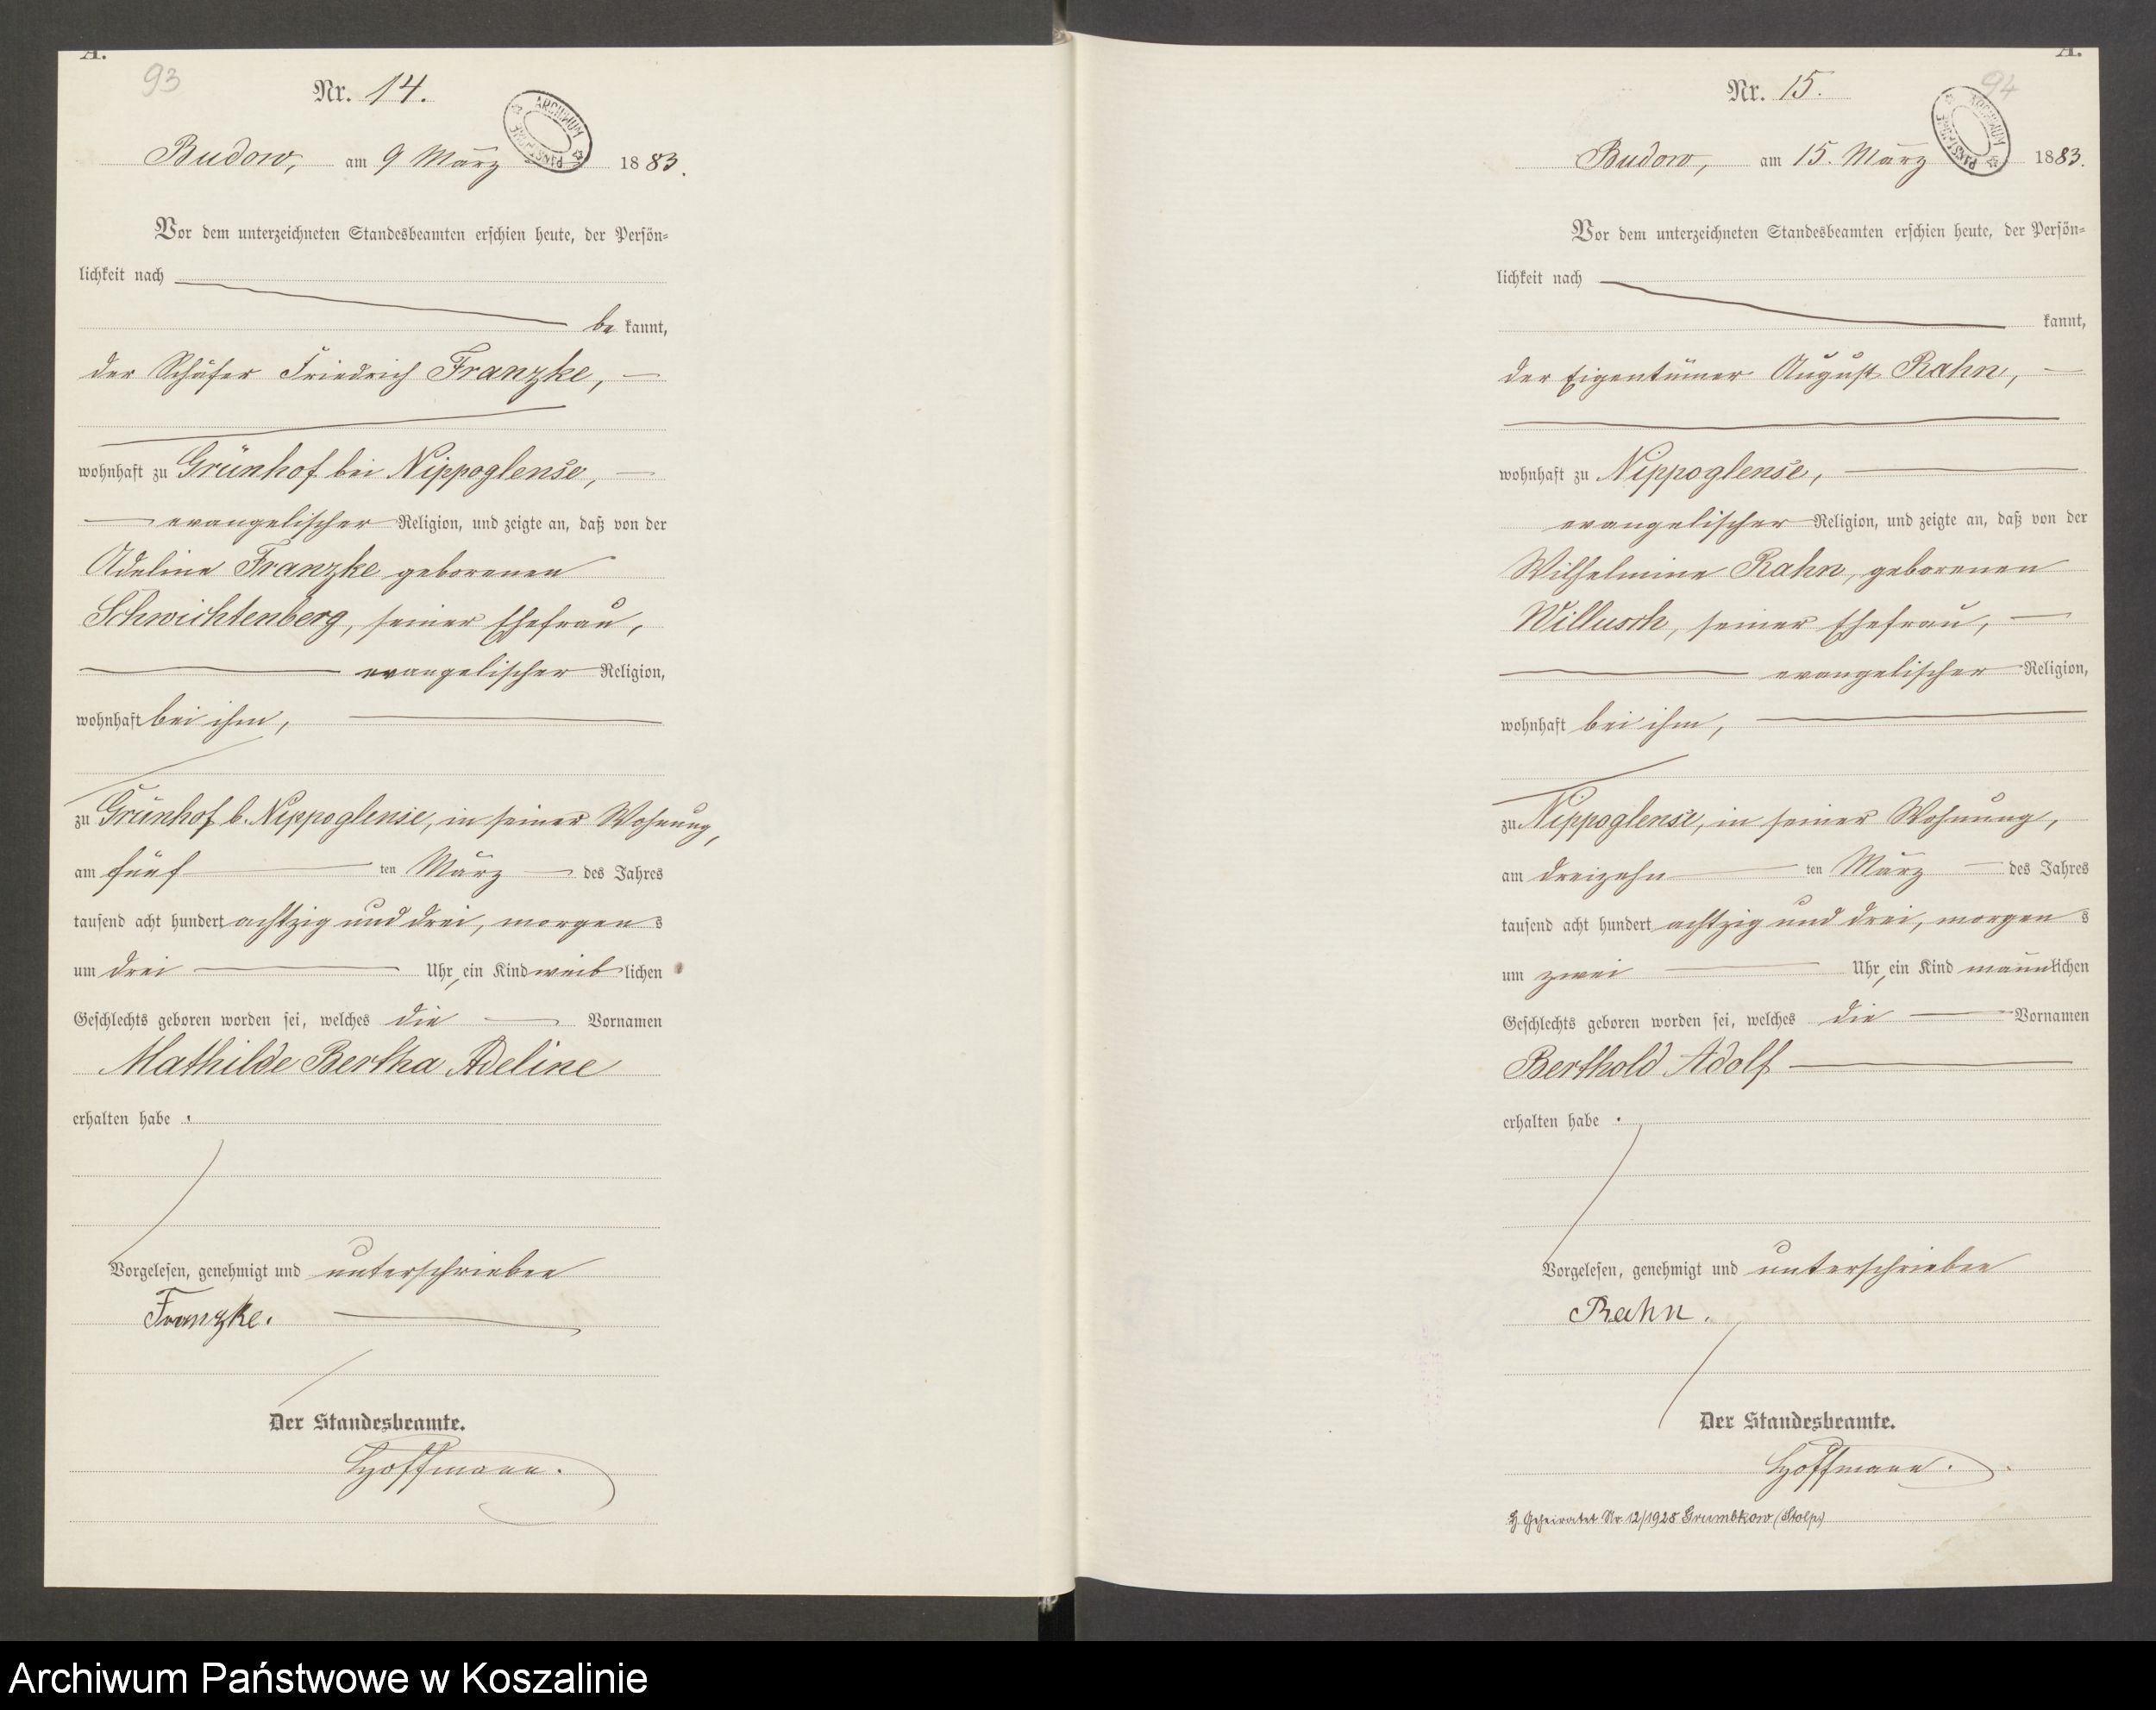 A.
93
Nr. 14.
ARCHIWUM PAŃSTWOWE
Budow, am 9 März 1883.
Vor dem unterzeichneten Standesbeamten erschien heute, der Persön-
lichkeit nach
be kannt,
der Schäfer Friedrich Franzke,
wohnhaft zu Grünhof bei Nippoglense,
evangelischer Religion, und zeigte an, daß von der
Adeline Franzke geborenen
Schwichtenberg, seiner Ehefrau,
evangelischer Religion,
wohnhaft bei ihm,
zu Grünhof b. Nippoglense, in seiner Wohnung,
am fünf ten März des Jahres
tausend acht hundert achtzig und drei, morgens
um drei Uhr, ein Kind weiblichen
Geschlechts geboren worden sei, welches die Vornamen
Mathilde Bertha Adeline
erhalten habe.
Vorgelesen, genehmigt und unterschrieben
Franzke.
Der Standesbeamte.
Hoffmann.
A.
94
Nr. 15.
ARCHIWUM PAŃSTWOWE
Budow, am 15. März 1883.
Vor dem unterzeichneten Standesbeamten erschien heute, der Persön-
lichkeit nach
kannt,
der Eigentümer August Rahn,
wohnhaft zu Nippoglense,
evangelischer Religion, und zeigte an, daß von der
Wilhelmine Rahn, geborenen
Willusch, seiner Ehefrau,
evangelischer Religion,
wohnhaft bei ihm,
zu Nippoglense, in seiner Wohnung,
am dreizehn ten März des Jahres
tausend acht hundert achtzig und drei, morgens
um zwei Uhr, ein Kind männlichen
Geschlechts geboren worden sei, welches die Vornamen
Berthold Adolf
erhalten habe.
Vorgelesen, genehmigt und unterschrieben
Rahn.
Der Standesbeamte.
Hoffmann.
H. Geheiratet Nr. 12/1925 Grumbkow (Stolp)
Archiwum Państwowe w Koszalinie